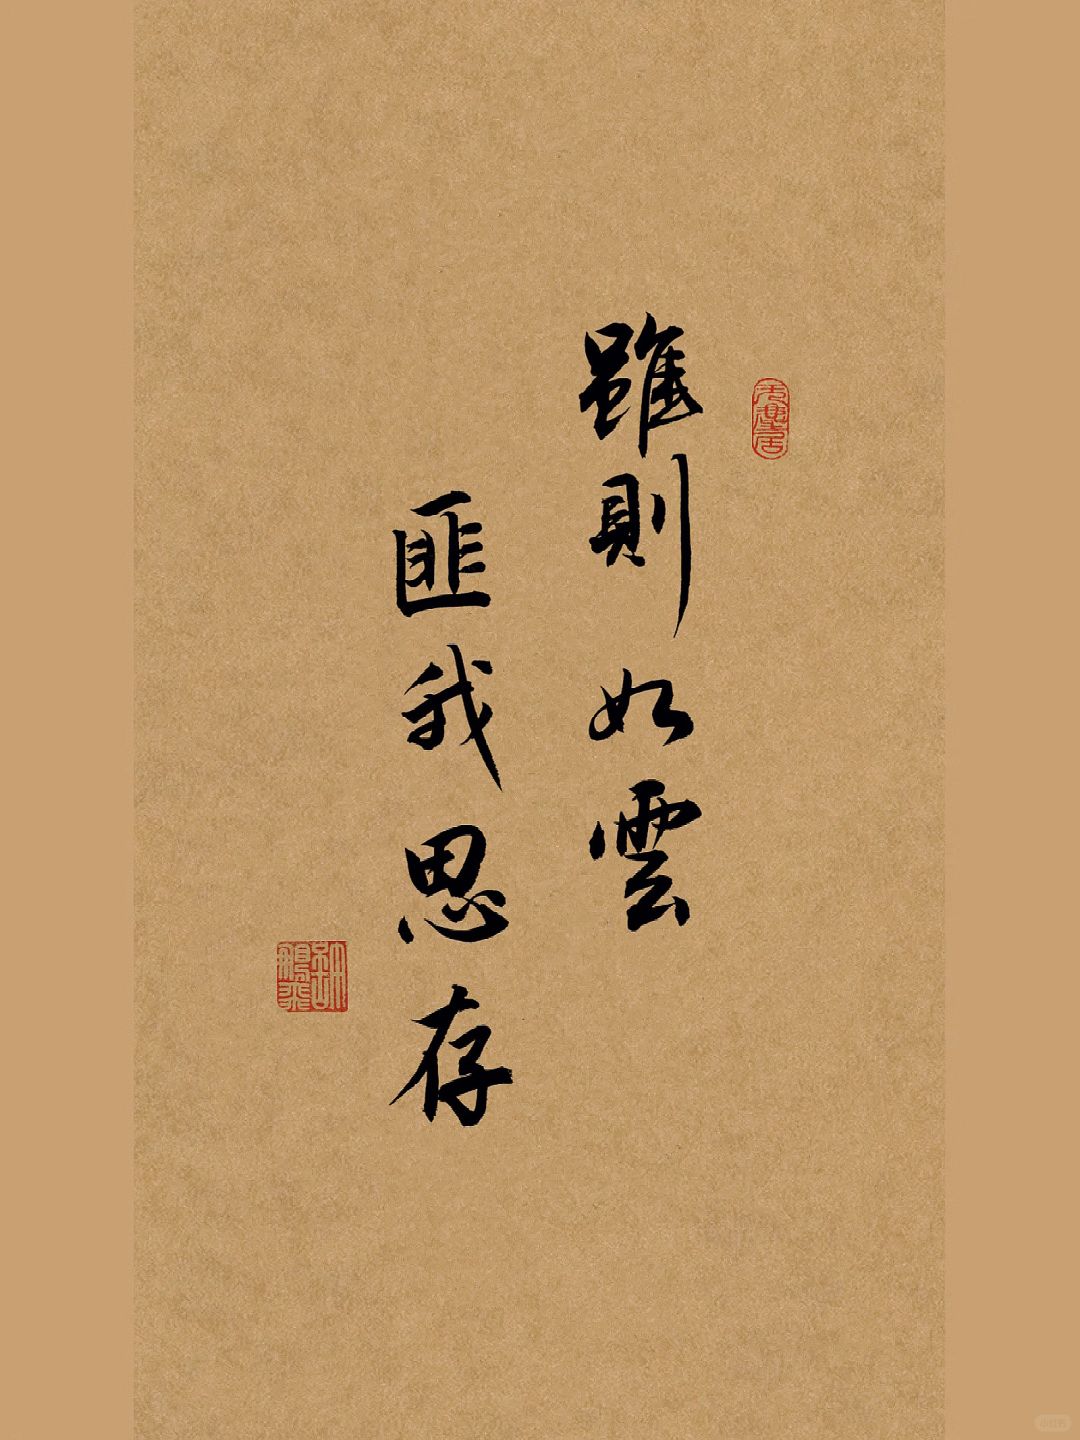 雖則如雲
匪我思存